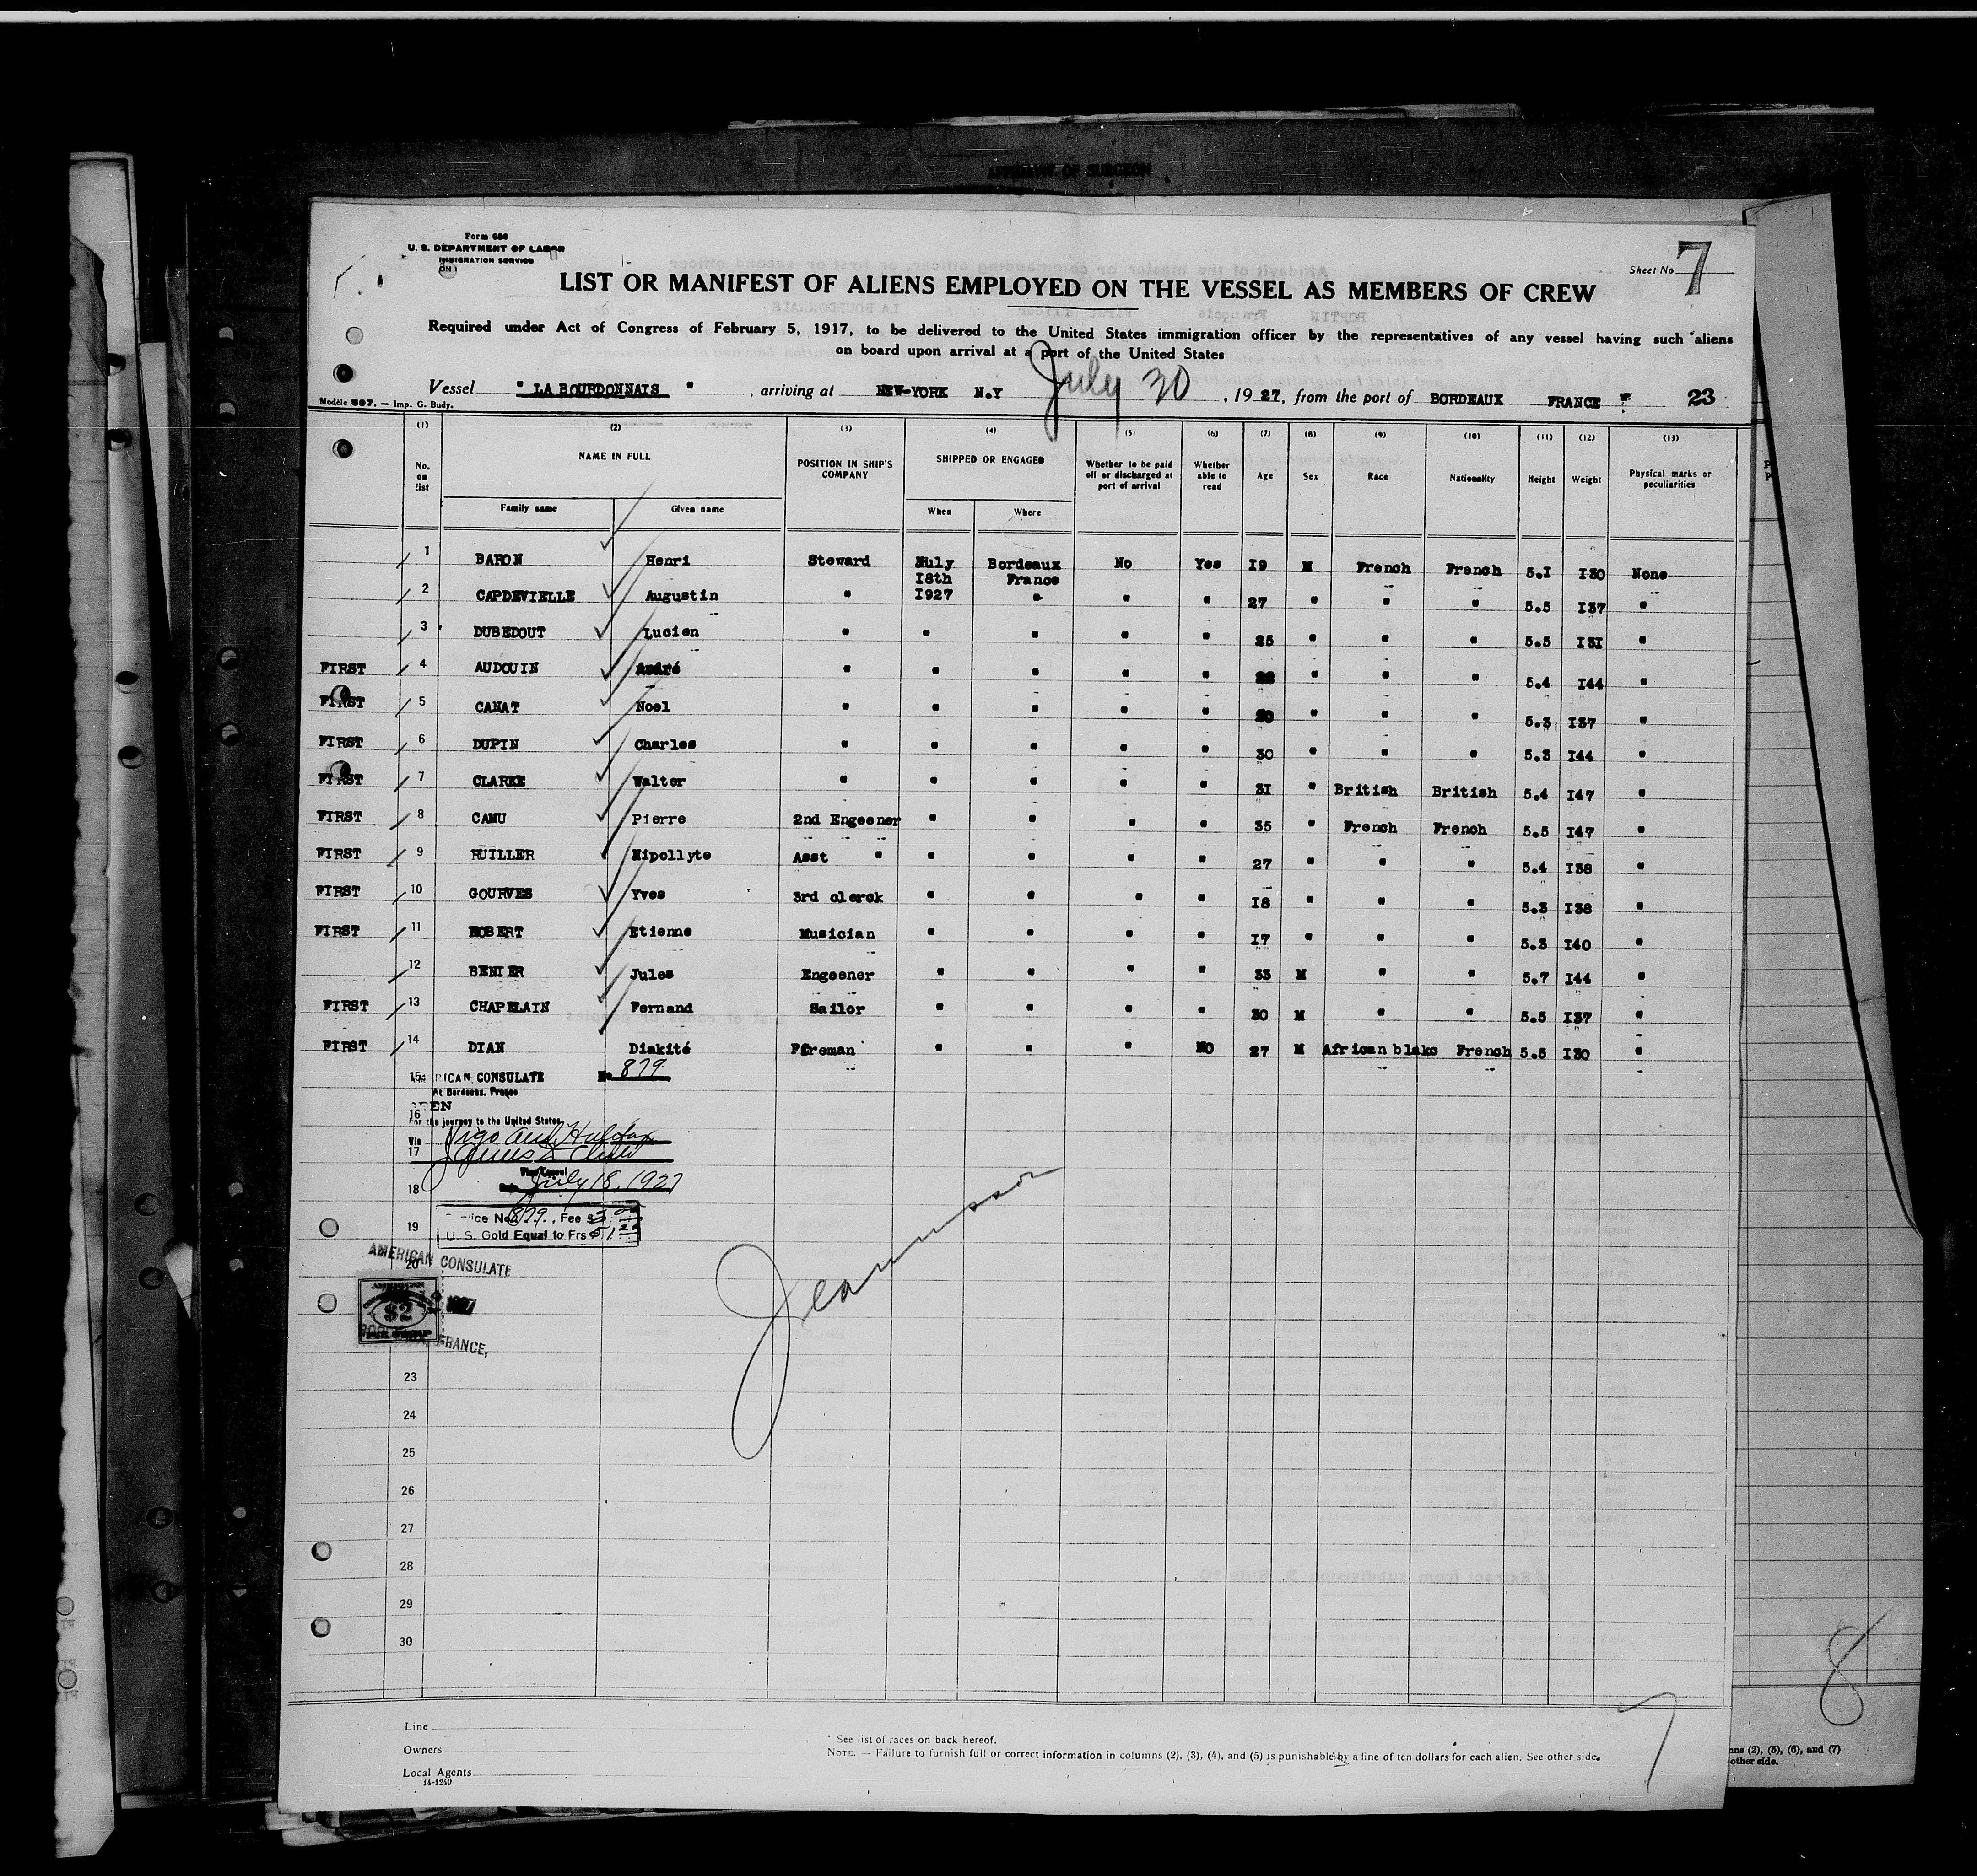 AFFIDAVIT OF SURGEON
Form 680
U. S. DEPARTMENT OF LABOR
IMMIGRATION SERVICE
Sheet No. 7
LIST OR MANIFEST OF ALIENS EMPLOYED ON THE VESSEL AS MEMBERS OF CREW
Required under Act of Congress of February 5, 1917, to be delivered to the United States immigration officer by the representatives of any vessel having such aliens
on board upon arrival at a port of the United States
Vessel " LA BOURDONNAIS " , arriving at NEW-YORK N.Y July 30 , 1927, from the port of BORDEAUX FRANCE 23
Modèle 597. — Imp. G. Budy.
(1) (2) (3) (4) (5) (6) (7) (8) (9) (10) (11) (12) (13)
No. on list NAME IN FULL POSITION IN SHIP'S COMPANY SHIPPED OR ENGAGED Whether to be paid off or discharged at port of arrival Whether able to read Age Sex Race Nationality Height Weight Physical marks or peculiarities
Family name Given name When Where
1 BARON Henri Steward July 18th 1927 Bordeaux France No Yes I9 M French French 5.I I30 None
2 CAPDEVIELLE Augustin " " " " 27 " " " 5.5 I37 "
3 DUBEDOUT Lucien " " " " " 25 " " " 5.5 I3I "
FIRST 4 AUDOUIN André " " " " " 22 " " " 5.4 I44 "
FIRST 5 CANAT Noel " " " " " 30 " " " 5.3 I37 "
FIRST 6 DUPIN Charles " " " " " 30 " " " 5.3 I44 "
FIRST 7 CLARKE Walter " " " " " 3I " British British 5.4 I47 "
FIRST 8 CAMU Pierre 2nd Engeener " " " " 35 " French French 5.5 I47 "
FIRST 9 RUILLER Hipollyte Asst " " " " " 27 " " " 5.4 I38 "
FIRST 10 GOURVES Yves 3rd clerck " " " " I8 " " " 5.3 I38 "
FIRST 11 ROBERT Etienne Musician " " " " I7 " " " 5.3 I40 "
12 BENIER Jules Engeener " " " " 33 M " " 5.7 I44 "
FIRST 13 CHAPELAIN Fernand Sailor " " " " 30 M " " 5.5 I37 "
FIRST 14 DIAN Diakité Fireman " " " NO 27 M African blakc French 5.5 I30 "
15 AMERICAN CONSULATE No 879
At Bordeaux, France
16
For the journey to the United States
Via Vigo and Halifax
17
Vice Consul
18 Date July 18, 1927
19 Service No 879., Fee $
U. S. Gold Equal to Frs
20
AMERICAN CONSULATE
AMERICAN
$2
1927
BORDEAUX, FRANCE,
Jeannesson
23
24
25
26
27
28
29
30
Line
Owners
Local Agents
14-1240
* See list of races on back hereof.
NOTE. — Failure to furnish full or correct information in columns (2), (3), (4), and (5) is punishable by a fine of ten dollars for each alien. See other side.
7
8
nns (2), (5), (6), and (7)
other side.